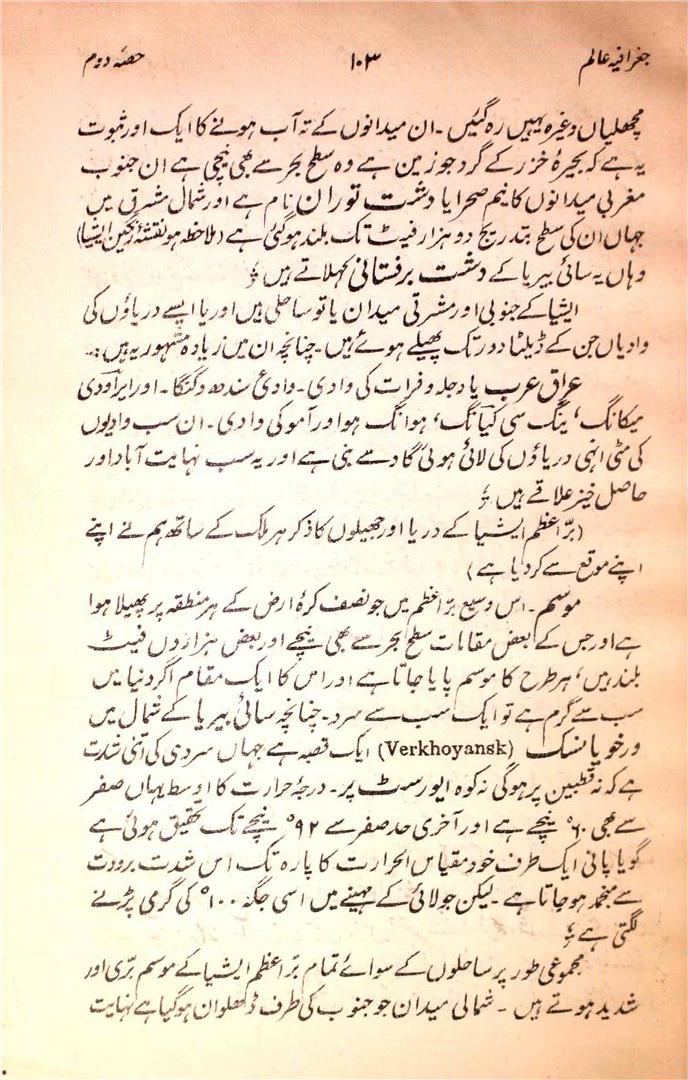 جغرافیہ عالم ۱۰۳ حصّہ دوم
مچھلیاں وغیرہ یہیں رہ گئیں ۔ ان میدانوں کے تہ آب ہونے کا ایک اور ثبوت
یہ ہے کہ بحیرۂ خزر کے گرد جو زمین ہے وہ سطح بحر سے بھی نیچی ہے ان جنوب
مغربی میدانوں کا نیم صحرا یا دشت توران نام ہے اور شمال مشرق میں
جہاں ان کی سطح بتدریج دو ہزار فیٹ تک بلند ہوگئی ہے (ملاحظہ ہو نقشۂ رنگین ایشیا)
وہاں یہ سائی بیریا کے دشت برفستانی کہلاتے ہیں ؛
ایشیا کے جنوبی اور مشرقی میدان یا تو ساحلی ہیں اور یا ایسے دریاؤں کی
وادیاں جن کے ڈیلٹا دور تک پھیلے ہوئے ہیں ۔ چنانچہ ان میں زیادہ مشہور یہ ہیں :۔
عراق عرب یا دجلہ و فرات کی وادی ۔ وادئ سندھ و گنگا ۔ اور ایراودی
میکانگ، ینگ سی کیانگ، ہوانگ ہو اور آمو کی وادی ۔ ان سب وادیوں
کی مٹی انہی دریاؤں کی لائی ہوئی گاد سے بنی ہے اور یہ سب نہایت آباد اور
حاصل خیز علاقے ہیں ؛
(برّاعظم ایشیا کے دریا اور جھیلوں کا ذکر ہر ملک کے ساتھ ہم نے اپنے
اپنے موقع سے کر دیا ہے)
موسم ۔ اس وسیع برّاعظم میں جو نصف کرۂ ارض کے ہر منطقہ پر پھیلا ہوا
ہے اور جس کے بعض مقامات سطح بحر سے بھی نیچے اور بعض ہزاروں فیٹ
بلند ہیں، ہر طرح کا موسم پایا جاتا ہے اور اس کا ایک مقام اگر دنیا میں
سب سے گرم ہے تو ایک سب سے سرد ۔ چنانچہ سائی بیریا کے شمال میں
ورخویانسک (Verkhoyansk) ایک قصبہ ہے جہاں سردی کی اتنی شدت
ہے کہ نہ قطبین پر ہوگی نہ کوہ ایورسٹ پر ۔ درجۂ حرارت کا اوسط یہاں صفر
سے بھی ۶۰° نیچے ہے اور آخری حد صفر سے ۹۲° نیچے تک تحقیق ہوئی ہے
گویا پانی ایک طرف خود مقیاس الحرارت کا پارہ تک اس شدت برودت
سے منجمد ہو جاتا ہے ۔ لیکن جولائی کے مہینے میں اسی جگہ ۱۰۰° کی گرمی پڑنے
لگتی ہے ؛
مجموعی طور پر ساحلوں کے سوائے تمام برّاعظم ایشیا کے موسم برّی اور
شدید ہوتے ہیں ۔ شمالی میدان جو جنوب کی طرف ڈھلوان ہو گیا ہے نہایت